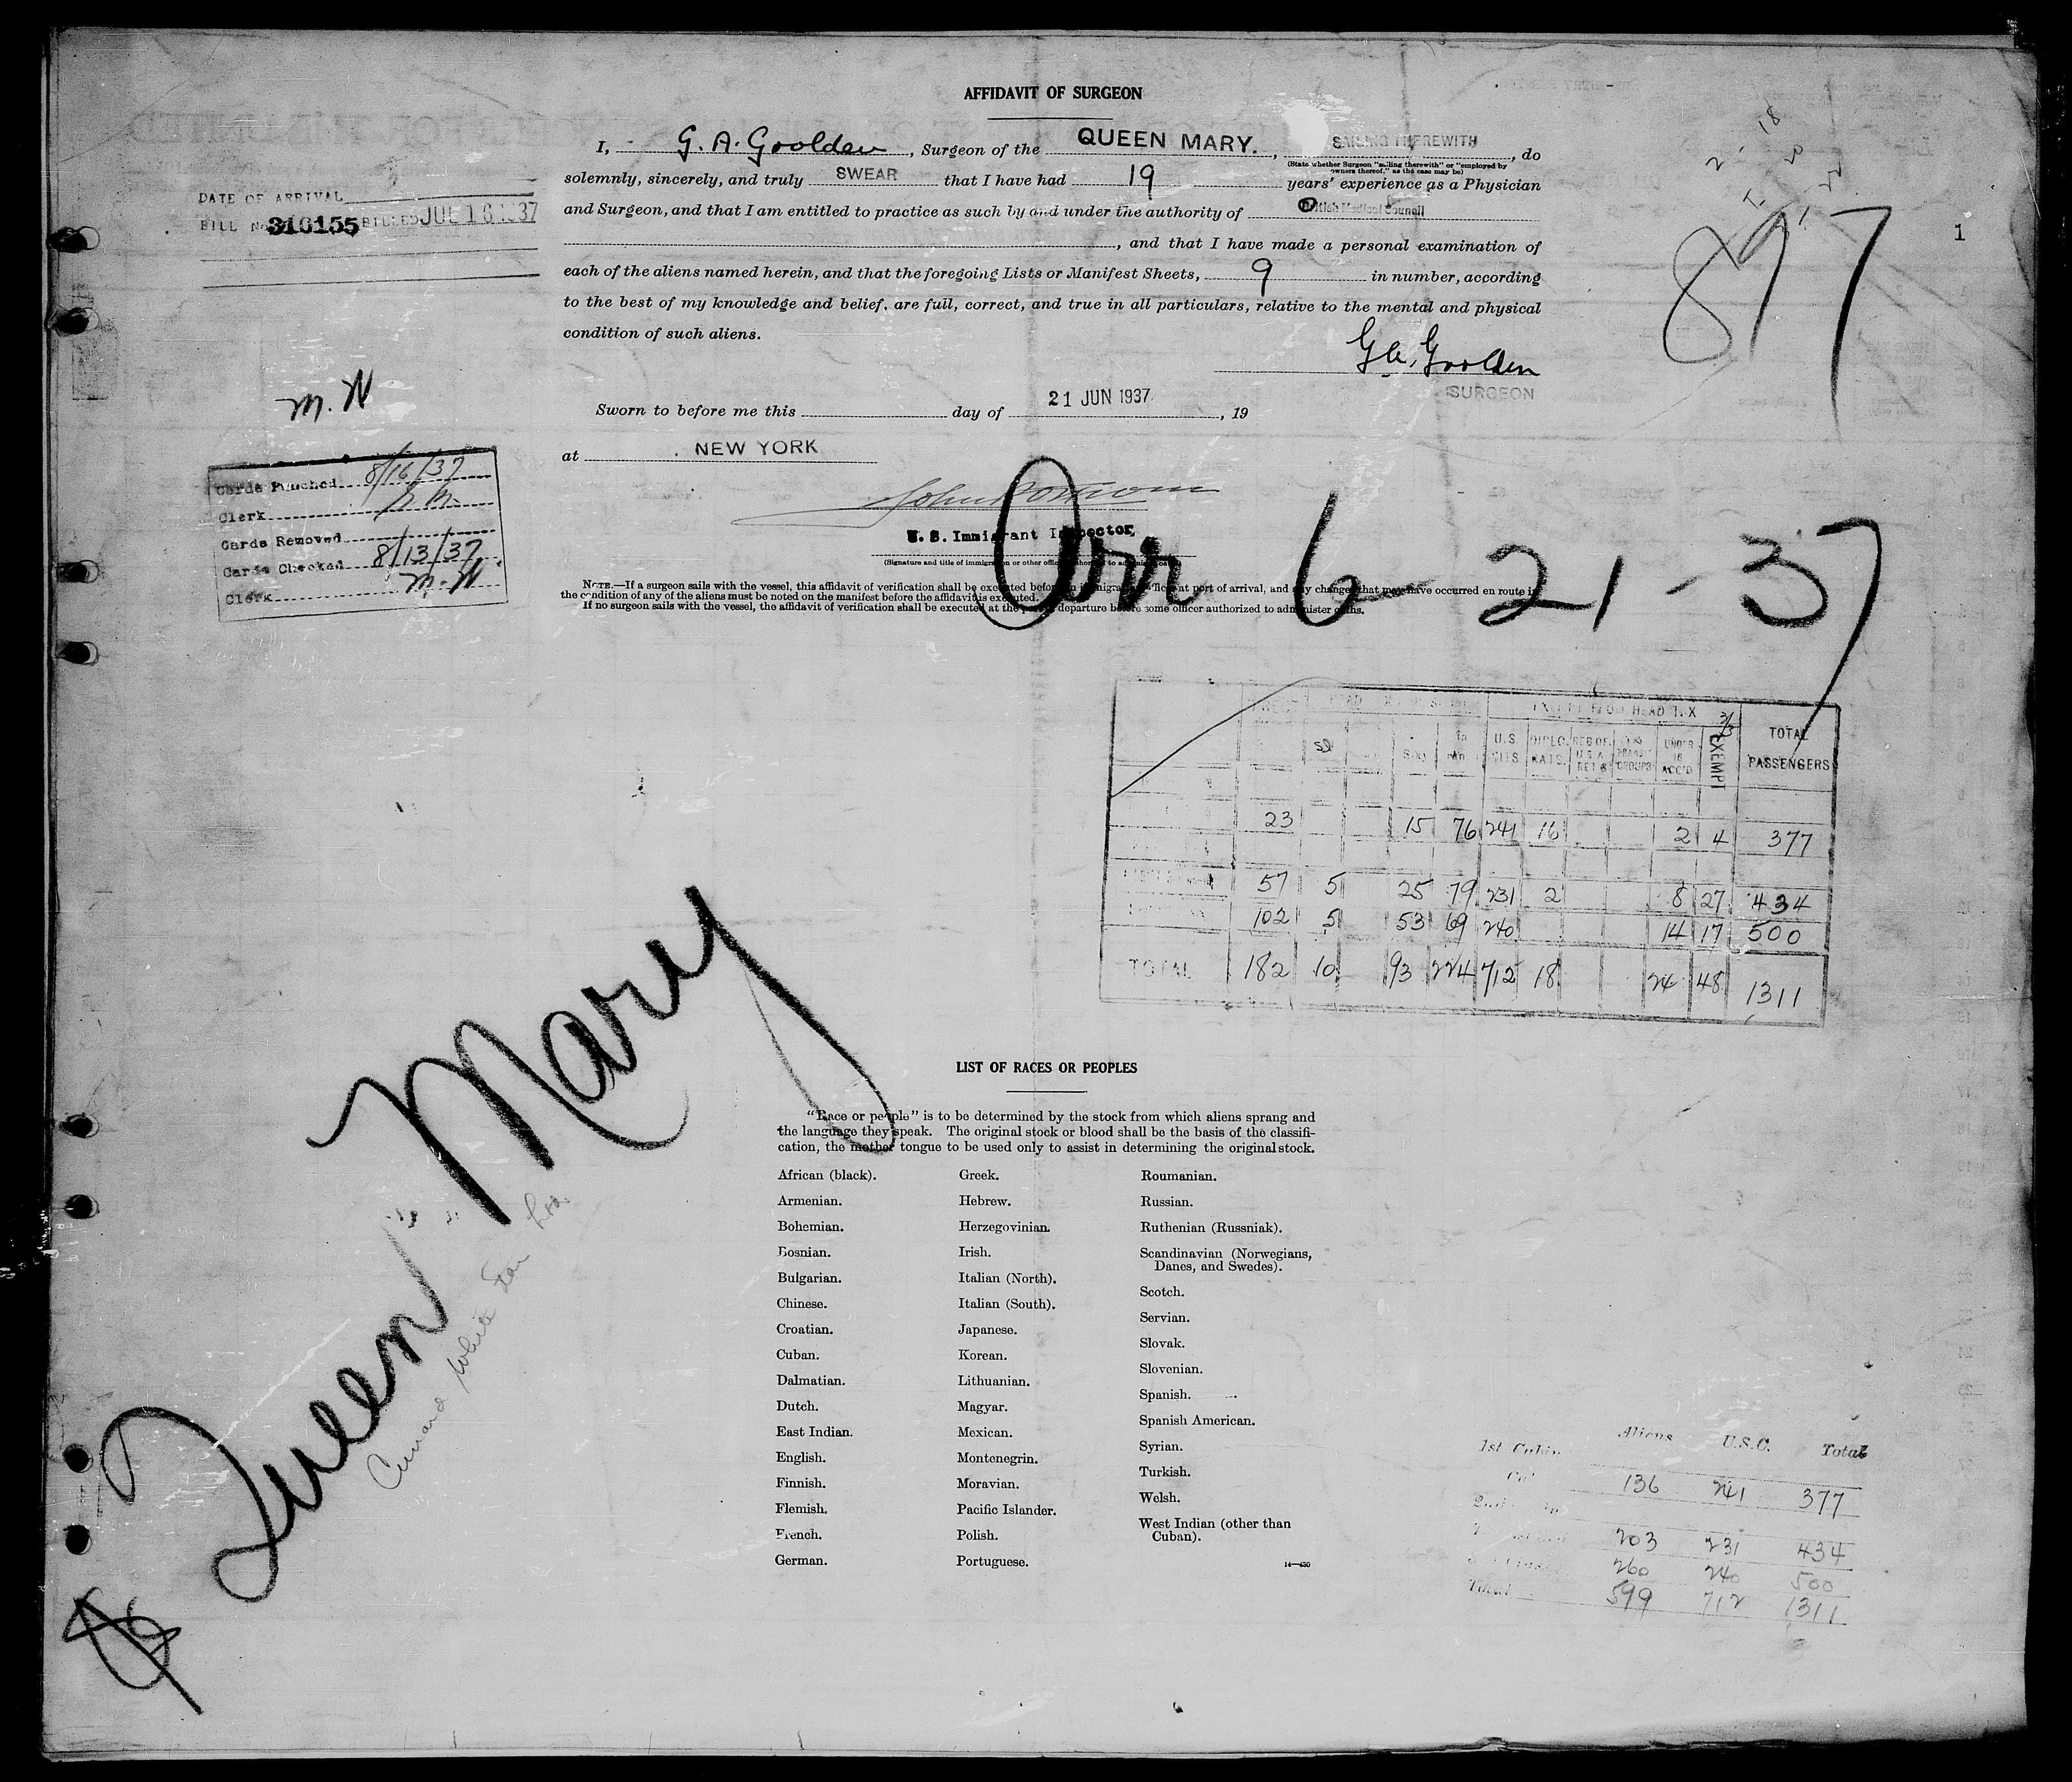 AFFIDAVIT OF SURGEON
I, G. A. Goolden, Surgeon of the QUEEN MARY., SAILING THEREWITH, do
(State whether Surgeon "sailing therewith" or "employed by
owners thereof," as the case may be)
solemnly, sincerely, and truly SWEAR that I have had 19 years' experience as a Physician
and Surgeon, and that I am entitled to practice as such by and under the authority of British Medical Council
, and that I have made a personal examination of
each of the aliens named herein, and that the foregoing Lists or Manifest Sheets, 9 in number, according
to the best of my knowledge and belief, are full, correct, and true in all particulars, relative to the mental and physical
condition of such aliens.
G. A. Goolden
SURGEON
Sworn to before me this day of 21 JUN 1937, 19
at NEW YORK
U. S. Immigrant Inspector,
(Signature and title of immigration or other officer authorized to administer oaths)
NOTE.—If a surgeon sails with the vessel, this affidavit of verification shall be executed before an immigration officer at port of arrival, and any changes that may have occurred en route in
the condition of any of the aliens must be noted on the manifest before the affidavit is executed.
If no surgeon sails with the vessel, the affidavit of verification shall be executed at the port of departure before some officer authorized to administer oaths.
DATE OF ARRIVAL
BILL No. 316155 BILLED JUL 16 1937
M. N
Cards Punched 8/16/37
Clerk
Cards Removed
Cards Checked 8/13/37
Clerk M. N.
897
1
Arr 6-21-37
HEAD TAX
EXEMPT FROM HEAD TAX
U.S. CITS
DIPLO. RATS.
UNDER 16 ACC'D
EXEMPT
TOTAL PASSENGERS
23 15 76 241 16 2 4 377
57 5 25 79 231 2 8 27 434
102 5 53 69 240 14 17 500
TOTAL 182 10 93 224 712 18 24 48 1311
Queen Mary
Cunard White Star
LIST OF RACES OR PEOPLES
"Race or people" is to be determined by the stock from which aliens sprang and
the language they speak. The original stock or blood shall be the basis of the classifi-
cation, the mother tongue to be used only to assist in determining the original stock.
African (black).
Armenian.
Bohemian.
Bosnian.
Bulgarian.
Chinese.
Croatian.
Cuban.
Dalmatian.
Dutch.
East Indian.
English.
Finnish.
Flemish.
French.
German.
Greek.
Hebrew.
Herzegovinian.
Irish.
Italian (North).
Italian (South).
Japanese.
Korean.
Lithuanian.
Magyar.
Mexican.
Montenegrin.
Moravian.
Pacific Islander.
Polish.
Portuguese.
Roumanian.
Russian.
Ruthenian (Russniak).
Scandinavian (Norwegians,
Danes, and Swedes).
Scotch.
Servian.
Slovak.
Slovenian.
Spanish.
Spanish American.
Syrian.
Turkish.
Welsh.
West Indian (other than
Cuban).
14—430
Aliens U.S.C. Total
1st Cabin
136 241 377
203 231 434
260 240 500
Total 599 712 1311